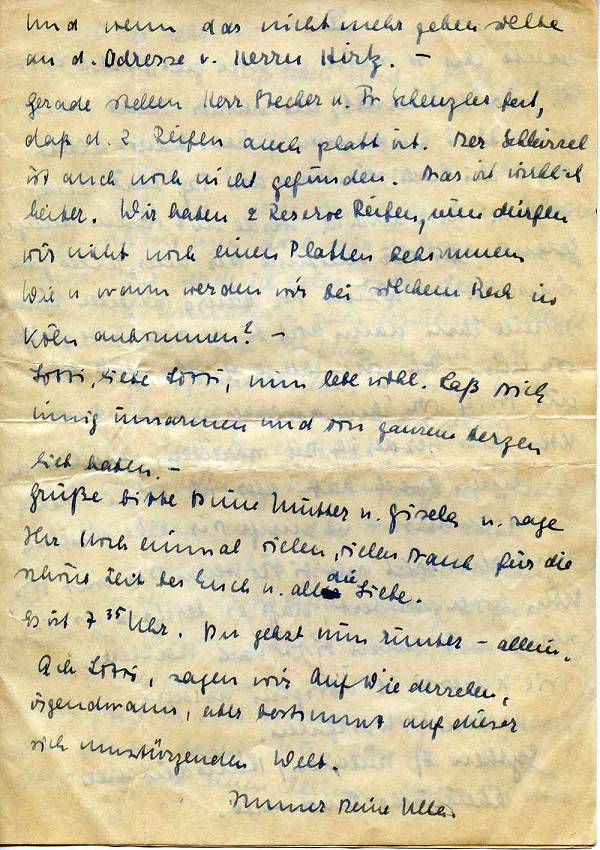 und wenn das nicht mehr gehen sollte
an d. Adresse v. Herrn Hirtz. –
Gerade stellen Herr Becher u. Fr. fest,
daß d. 2 Reifen auch platt ist. Der Schlüssel
ist auch noch nicht gefunden. Das ist wirklich
heiter. Wir haben 2 Reserve Reifen, nun dürfen
wir nicht noch einen Platten bekommen
Wie u. wann werden wir bei solchem Pech in
Köln ankommen? –
Lotti, liebe Lotti, nun lebe wohl. Laß Dich
innig umarmen und von ganzem Herzen
lieb haben. –
Grüße bitte Deine Mutter u. Gisela u. sage
Ihr noch einmal vielen, vielen Dank für die
schöne Zeit bei Euch u. all die Liebe.
Es ist 7 35 Uhr. Du gehst nun runter – allein.
Ach Lotti, sagen wir Auf Wiedersehen,
irgendwann, aber bestimmt auf dieser
sich umstürzenden Welt.
Immer Deine Ulla